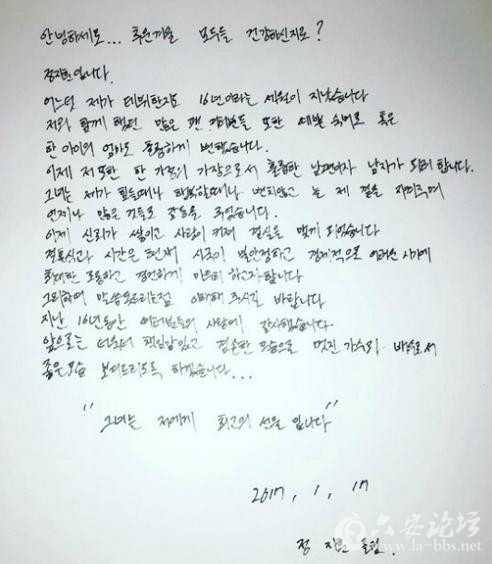 안녕하세요... 추운겨울 모두들 건강하신지요?
정지훈입니다.
어느덧 제가 데뷔한지도 16년이라는 세월이 지났습니다
저와 함께 했던 많은 팬 여러분들 또한 세월 속에서 혹은
한 아이의 엄마로 훌륭하게 변했습니다.
이제 저 또한 한 가정의 가장으로서 훌륭한 남편이자 남자가 되려 합니다.
그녀는 제가 힘들때나 행복할때나 변치않고 늘 제 곁을 지켜주며
언제나 많은 것들로 감동을 주었습니다.
이제 신뢰가 쌓이고 사랑이 커져 결실을 맺게 되었습니다
결혼식과 시간은 현재 시국이 불안정하고 경제적으로 어려운 시기에
최대한 조용하고 경건하게 마무리 하고자 합니다
그리하여 말씀못드리는점 이해해 주시길 바랍니다
지난 16년동안 여러분들의 사랑에 감사했습니다.
앞으로는 더욱더 책임감있고 겸손한 모습으로 멋진 가수와 배우로서
좋은모습 보여드리도록 하겠습니다...
"그녀는 저에게 최고의 선물 입니다"
2017, 1, 17
정 지훈 올림.
六安论坛
www.la-bbs.net